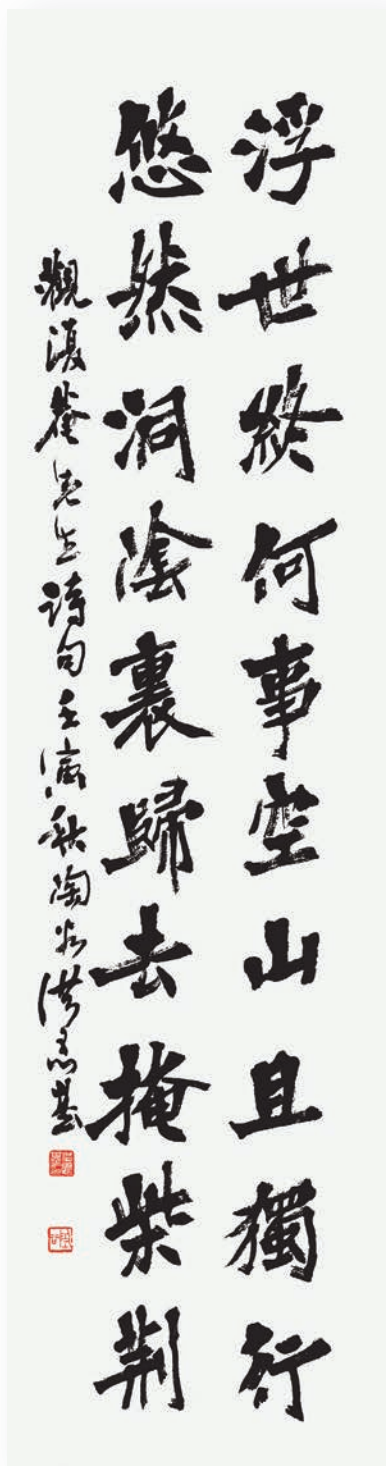 浮世終何事空山且獨行
悠然洞陰裏歸去掩柴荆
觀復菴先生詩句壬寅秋陶